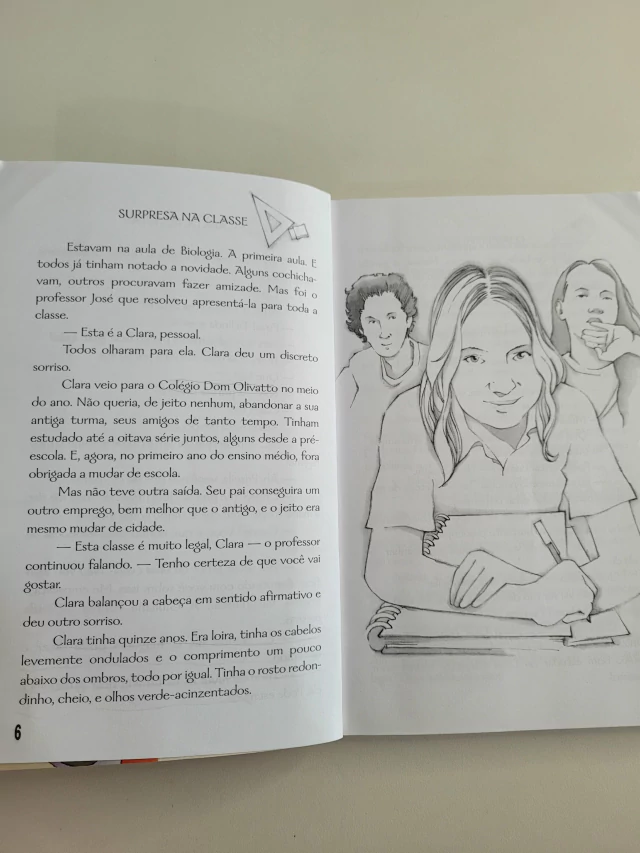 SURPRESA NA CLASSE
Estavam na aula de Biologia. A primeira aula. E
todos já tinham notado a novidade. Alguns cochicha-
vam, outros procuravam fazer amizade. Mas foi o
professor José que resolveu apresentá-la para toda a
classe.
— Esta é a Clara, pessoal.
Todos olharam para ela. Clara deu um discreto
sorriso.
Clara veio para o Colégio Dom Olivatto no meio
do ano. Não queria, de jeito nenhum, abandonar a sua
antiga turma, seus amigos de tanto tempo. Tinham
estudado até a oitava série juntos, alguns desde a pré-
escola. E, agora, no primeiro ano do ensino médio, fora
obrigada a mudar de escola.
Mas não teve outra saída. Seu pai conseguira um
outro emprego, bem melhor que o antigo, e o jeito era
mesmo mudar de cidade.
— Esta classe é muito legal, Clara — o professor
continuou falando. — Tenho certeza de que você vai
gostar.
Clara balançou a cabeça em sentido afirmativo e
deu outro sorriso.
Clara tinha quinze anos. Era loira, tinha os cabelos
levemente ondulados e o comprimento um pouco
abaixo dos ombros, todo por igual. Tinha o rosto redon-
dinho, cheio, e olhos verde-acinzentados.
6